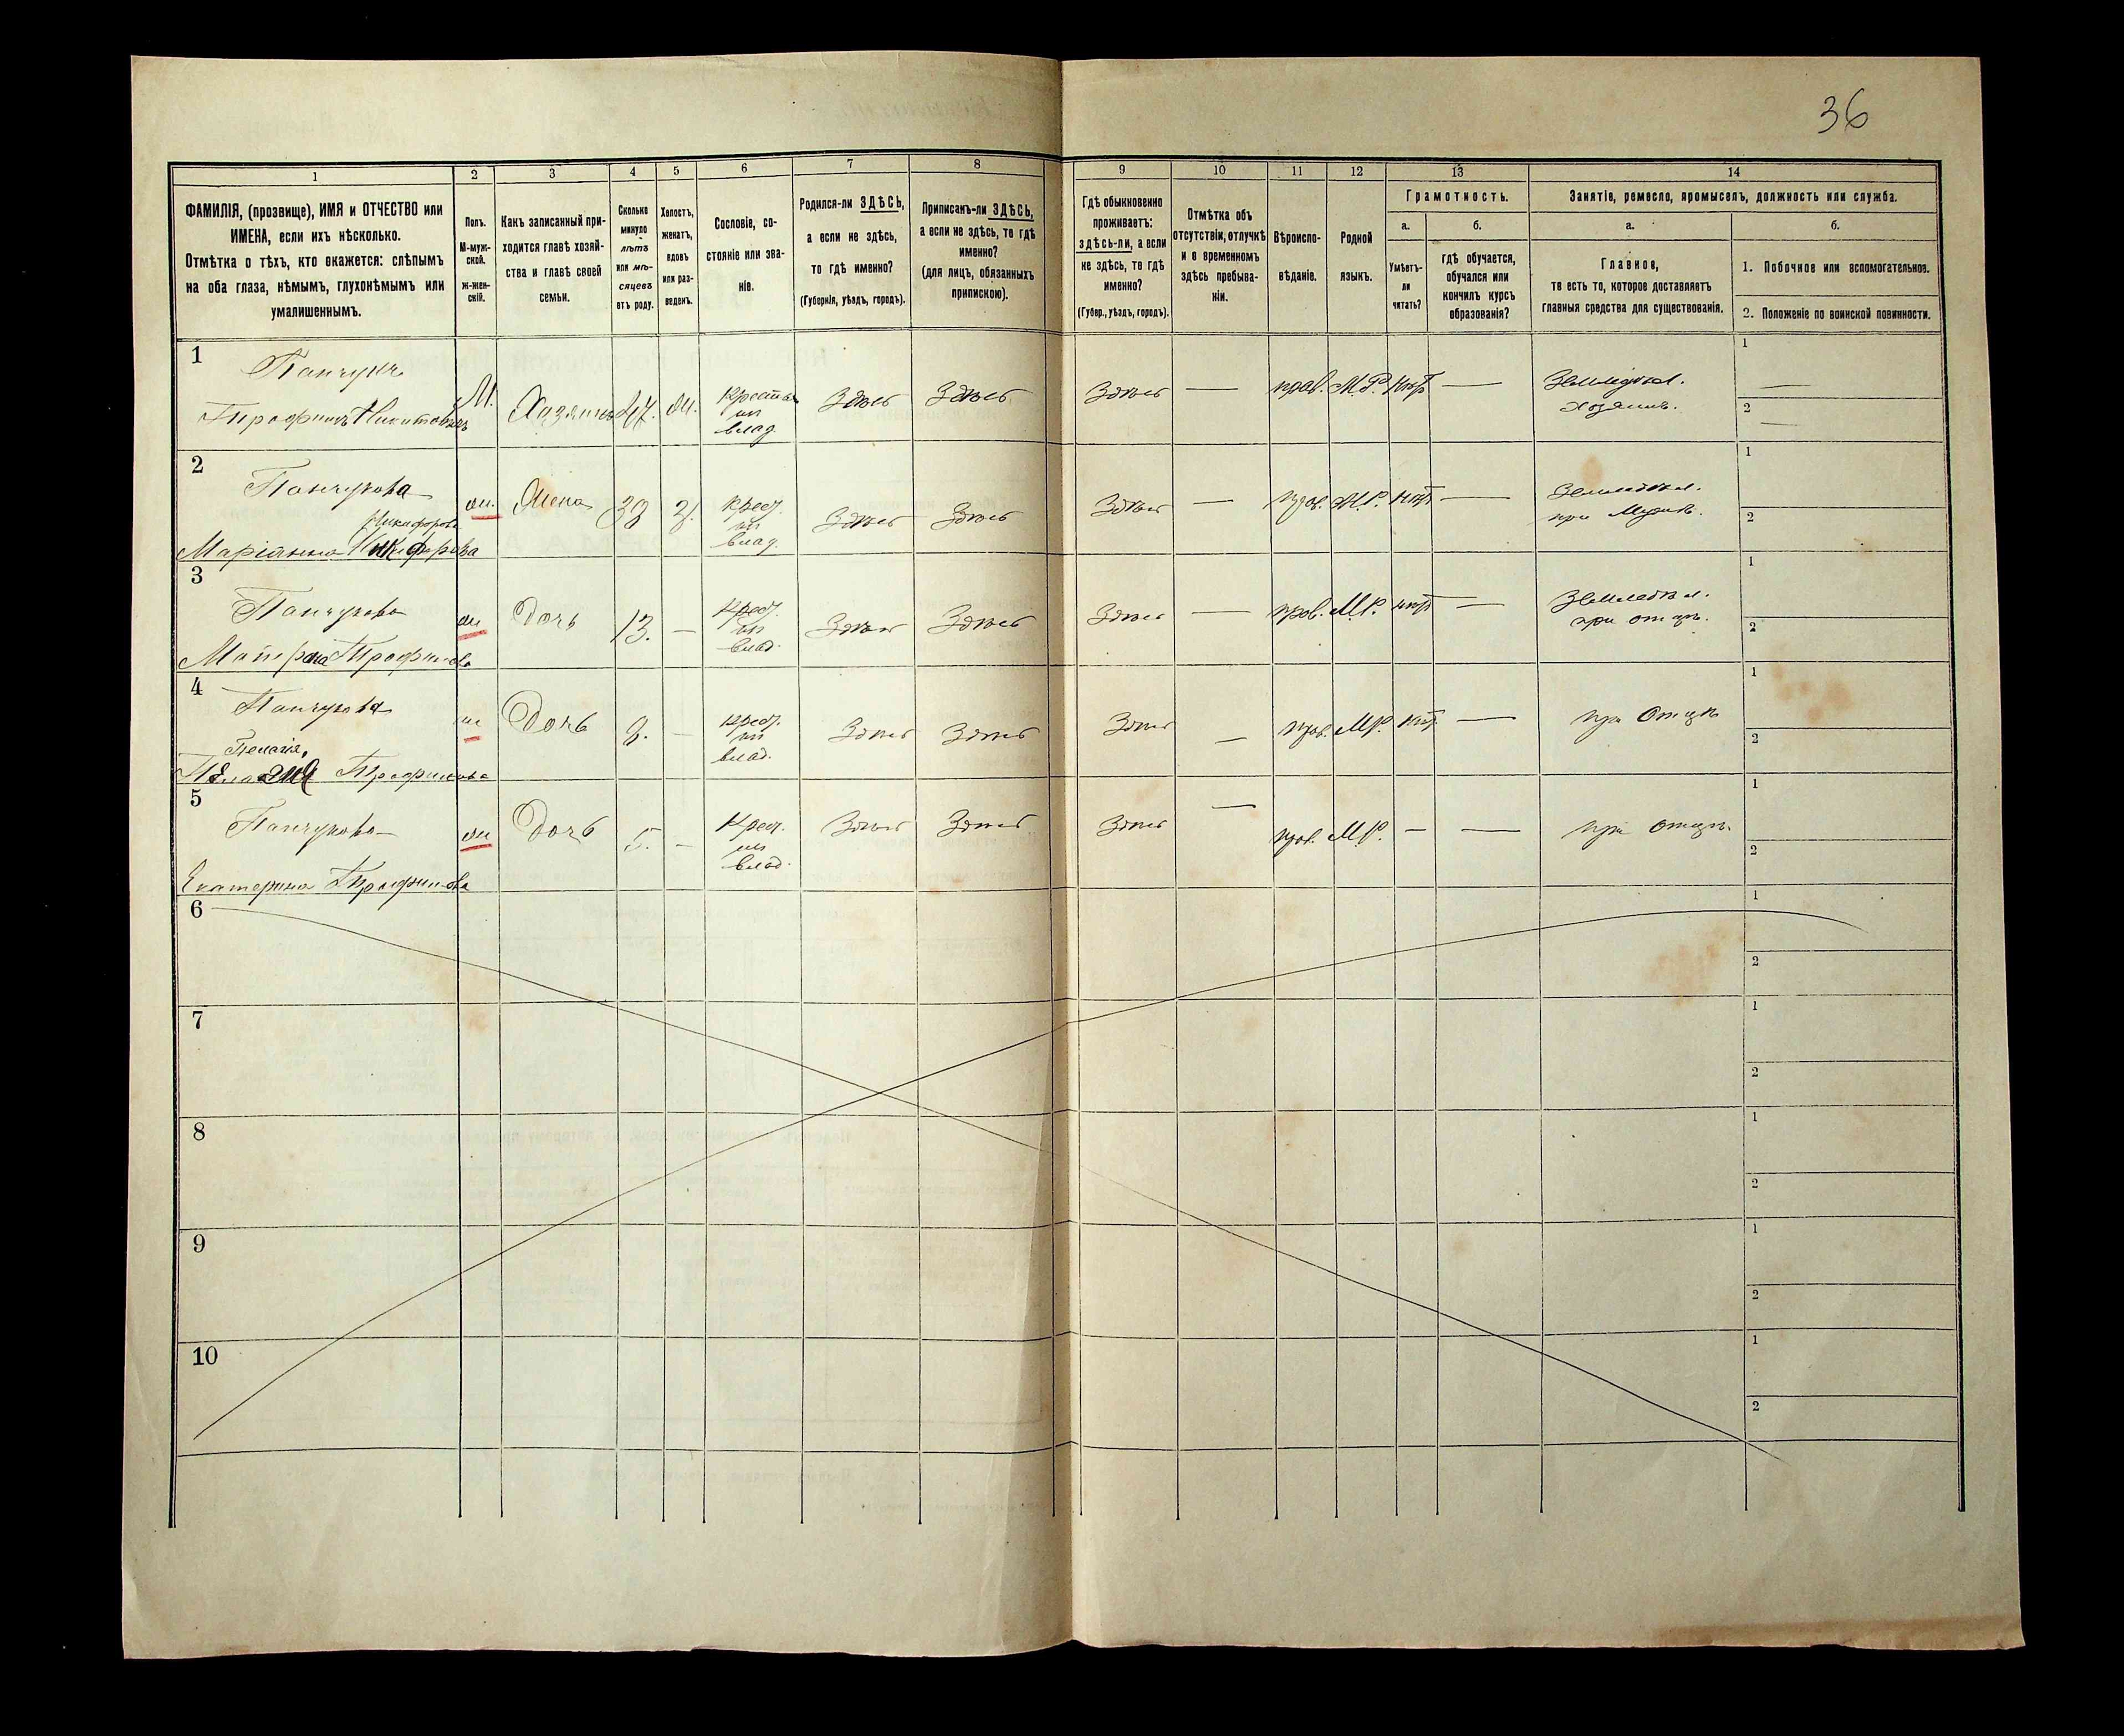 36
1 2 3 4 5 6 7 8 9 10 11 12 13 14
ФАМИЛІЯ, (прозвище), ИМЯ и ОТЧЕСТВО или
ИМЕНА, если ихъ нѣсколько.
Отмѣтка о тѣхъ, кто окажется: слѣпымъ
на оба глаза, нѣмымъ, глухонѣмымъ или
умалишеннымъ.
Полъ.
М-муж-
ской.
ж-жен-
скій.
Какъ записанный при-
ходится главѣ хозяй-
ства и главѣ своей
семьи.
Сколько
минуло
лѣтъ
или мѣ-
сяцевъ
отъ роду.
Холостъ,
женатъ,
вдовъ
или раз-
веденъ.
Сословіе, со-
стояніе или зва-
ніе.
Родился-ли ЗДѢСЬ,
а если не здѣсь,
то гдѣ именно?
(Губернія, уѣздъ, городъ).
Приписанъ-ли ЗДѢСЬ,
а если не здѣсь, то гдѣ
именно?
(для лицъ, обязанныхъ
припискою).
Гдѣ обыкновенно
проживаетъ:
здѣсь-ли, а если
не здѣсь, то гдѣ
именно?
(Губер., уѣздъ, городъ).
Отмѣтка объ
отсутствіи, отлучкѣ
и о временномъ
здѣсь пребыва-
ніи.
Вѣроиспо-
вѣданіе.
Родной
языкъ.
Грамотность.
а.
Умѣетъ-
ли
читать?
б.
гдѣ обучается,
обучался или
кончилъ курсъ
образованія?
Занятіе, ремесло, промыселъ, должность или служба.
а.
Главное,
то есть то, которое доставляетъ
главныя средства для существованія.
б.
1. Побочное или вспомогательное.
2. Положеніе по воинской повинности.
1
Панчукъ
Трофимъ Никитовъ
М. Хазяинъ 47. ж. Крестья
из
влад.
Здѣсь Здѣсь Здѣсь — прав. М.Р. нѣт —
Земледѣл.
Хозяинъ.
1 —
2 —
2
Панчукова
Никифорова
Маріанна
ж. Жена З. Крест.
из
влад.
Здѣсь Здѣсь Здѣсь — прав. М.Р. нѣт —
Земледѣл.
при Мужѣ.
1
2
3
Панчукова
Матрона Трофимова
ж Дочь 13. — Крест.
из
влад.
Здѣсь Здѣсь Здѣсь — прав. М.Р. нѣт —
Земледѣл.
при отцѣ.
1
2
4
Панчукова
Пелагія
Трофимова
ж Дочь — Крест.
из
влад.
Здѣсь Здѣсь Здѣсь — прав. М.Р. нѣт —
при Отцѣ
1
2
5
Панчукова
Екатерина Трофимова
ж Дочь 5. — Крест.
из
влад.
Здѣсь Здѣсь Здѣсь — прав. М.Р. — —
при Отцѣ.
1
2
6
1
2
7
1
2
8
1
2
9
1
2
10
1
2